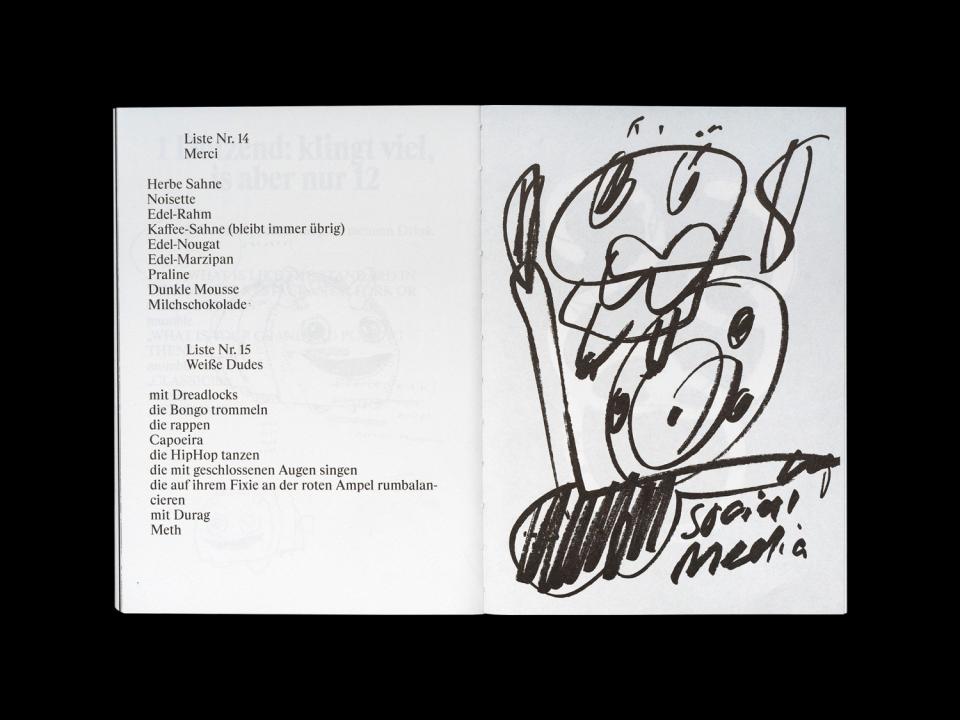 Liste Nr. 14
Merci
Herbe Sahne
Noisette
Edel-Rahm
Kaffee-Sahne (bleibt immer übrig)
Edel-Nougat
Edel-Marzipan
Praline
Dunkle Mousse
Milchschokolade
Liste Nr. 15
Weiße Dudes
mit Dreadlocks
die Bongo trommeln
die rappen
Capoeira
die HipHop tanzen
die mit geschlossenen Augen singen
die auf ihrem Fixie an der roten Ampel rumbalan-
cieren
mit Durag
Meth
social
Media